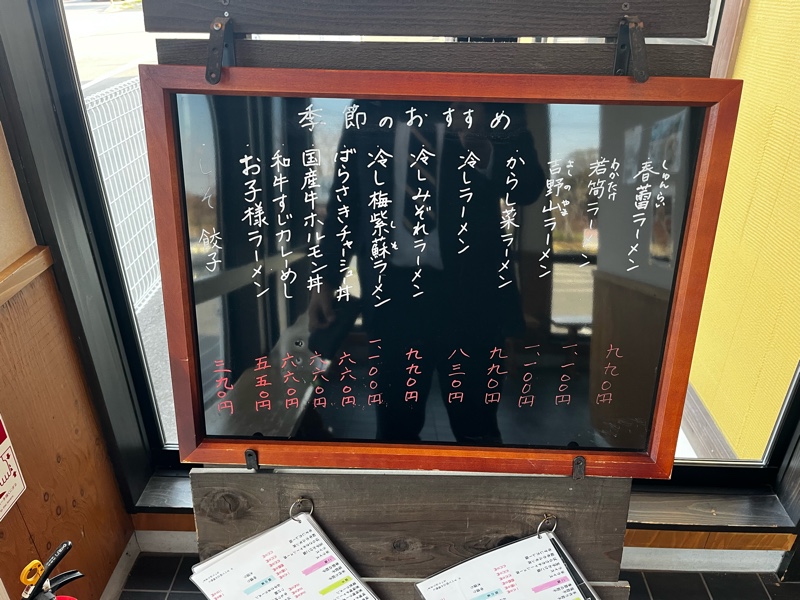 季節のおすすめ
しゅんらい
春蕾ラーメン 九九〇円
わかたけ
若筍ラーメン 一、一〇〇円
よしのやま
吉野山ラーメン 一、一〇〇円
からし菜ラーメン 九九〇円
冷しラーメン 八三〇円
冷しみぞれラーメン 九九〇円
冷し梅紫蘇ラーメン 一、一〇〇円
しそ
ばらさきチャーシュー丼 六六〇円
国産牛ホルモン丼 六六〇円
和牛すじカレーめし 六六〇円
お子様ラーメン 五五〇円
しそ餃子 三九〇円